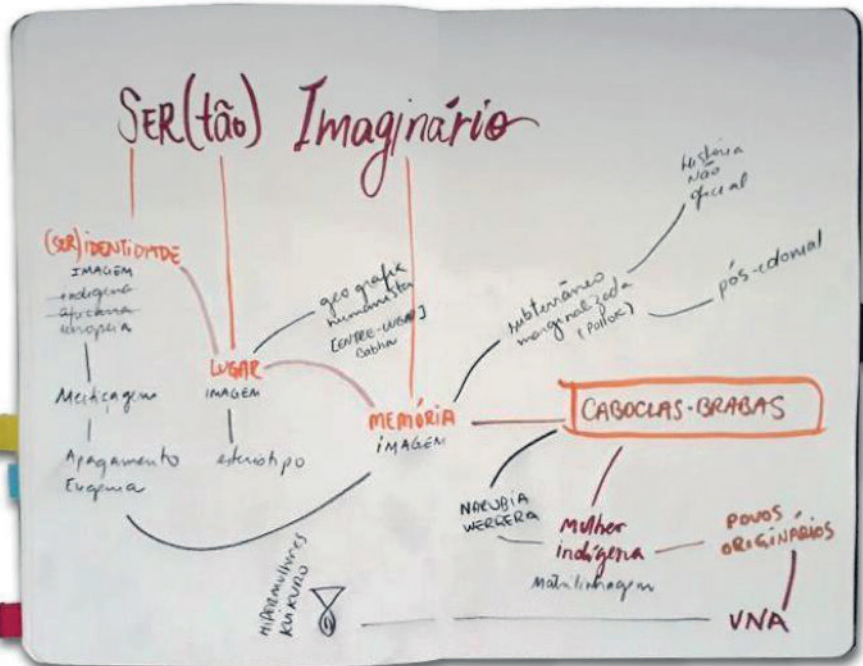 SER(tão) Imaginário
(SER)IDENTIDADE
IMAGEM
indígena
africana
europeia
Mestiçagem
Apagamento
Eugenia
LUGAR
IMAGEM
esteriótipo
geografia
humanista
[ENTRE-LUGAR]
Babha
MEMÓRIA
IMAGEM
subterrâneo
marginalizada
(Pollak)
história
não
oficial
pós-colonial
CABOCLAS-BRABAS
NARUBIA
WERRERA
Mulher
indígena
Matrilinhagem
POVOS
ORIGINÁRIOS
VNA
HIPERMULHERES
KUIKURO